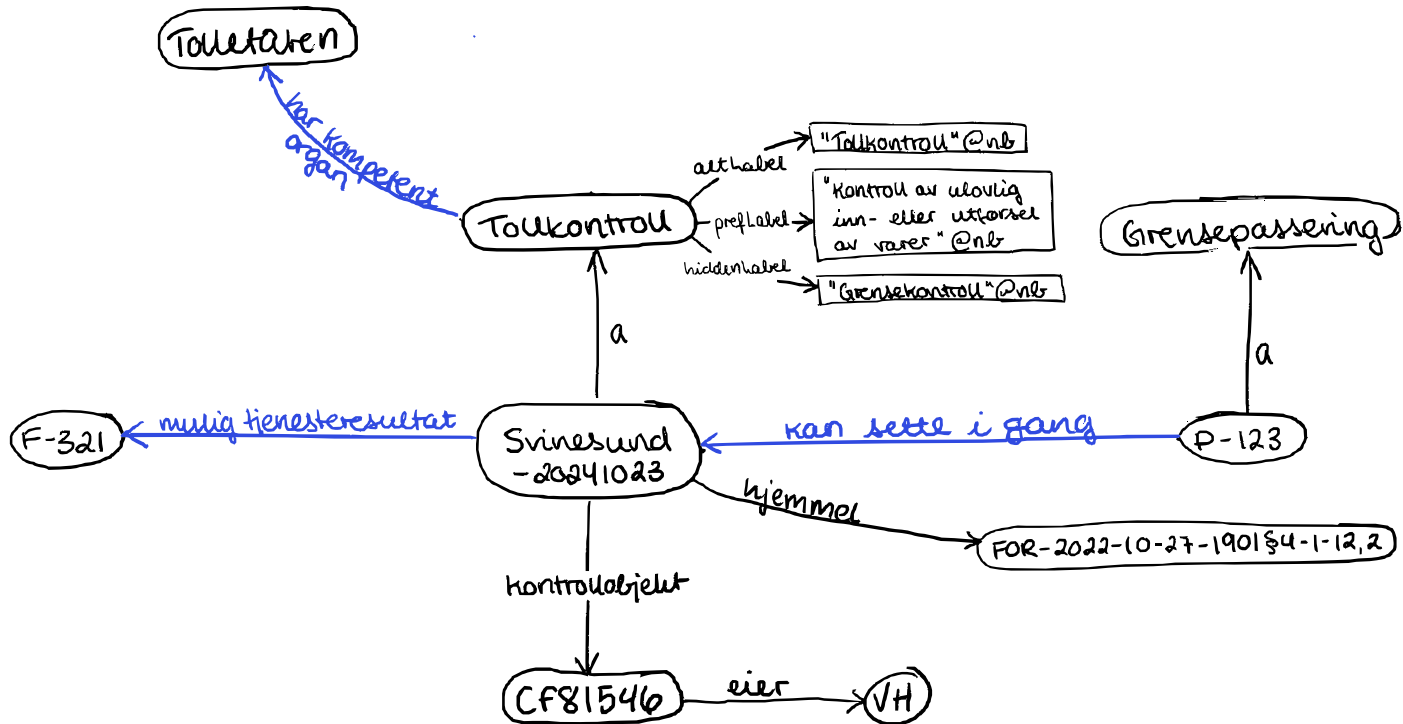 Tolletaten
har kompetent
organ
altLabel
"Tollkontroll"@nb
Tollkontroll
prefLabel
"Kontroll av ulovlig
inn- eller utførsel
av varer"@nb
Grensepassering
hiddenLabel
"Grensekontroll"@nb
a
a
F-321
mulig tjenesteresultat
Svinesund
-20241023
kan sette i gang
P-123
hjemmel
FOR-2022-10-27-1901§4-1-12,2
kontrollobjekt
CF81546
eier
VH